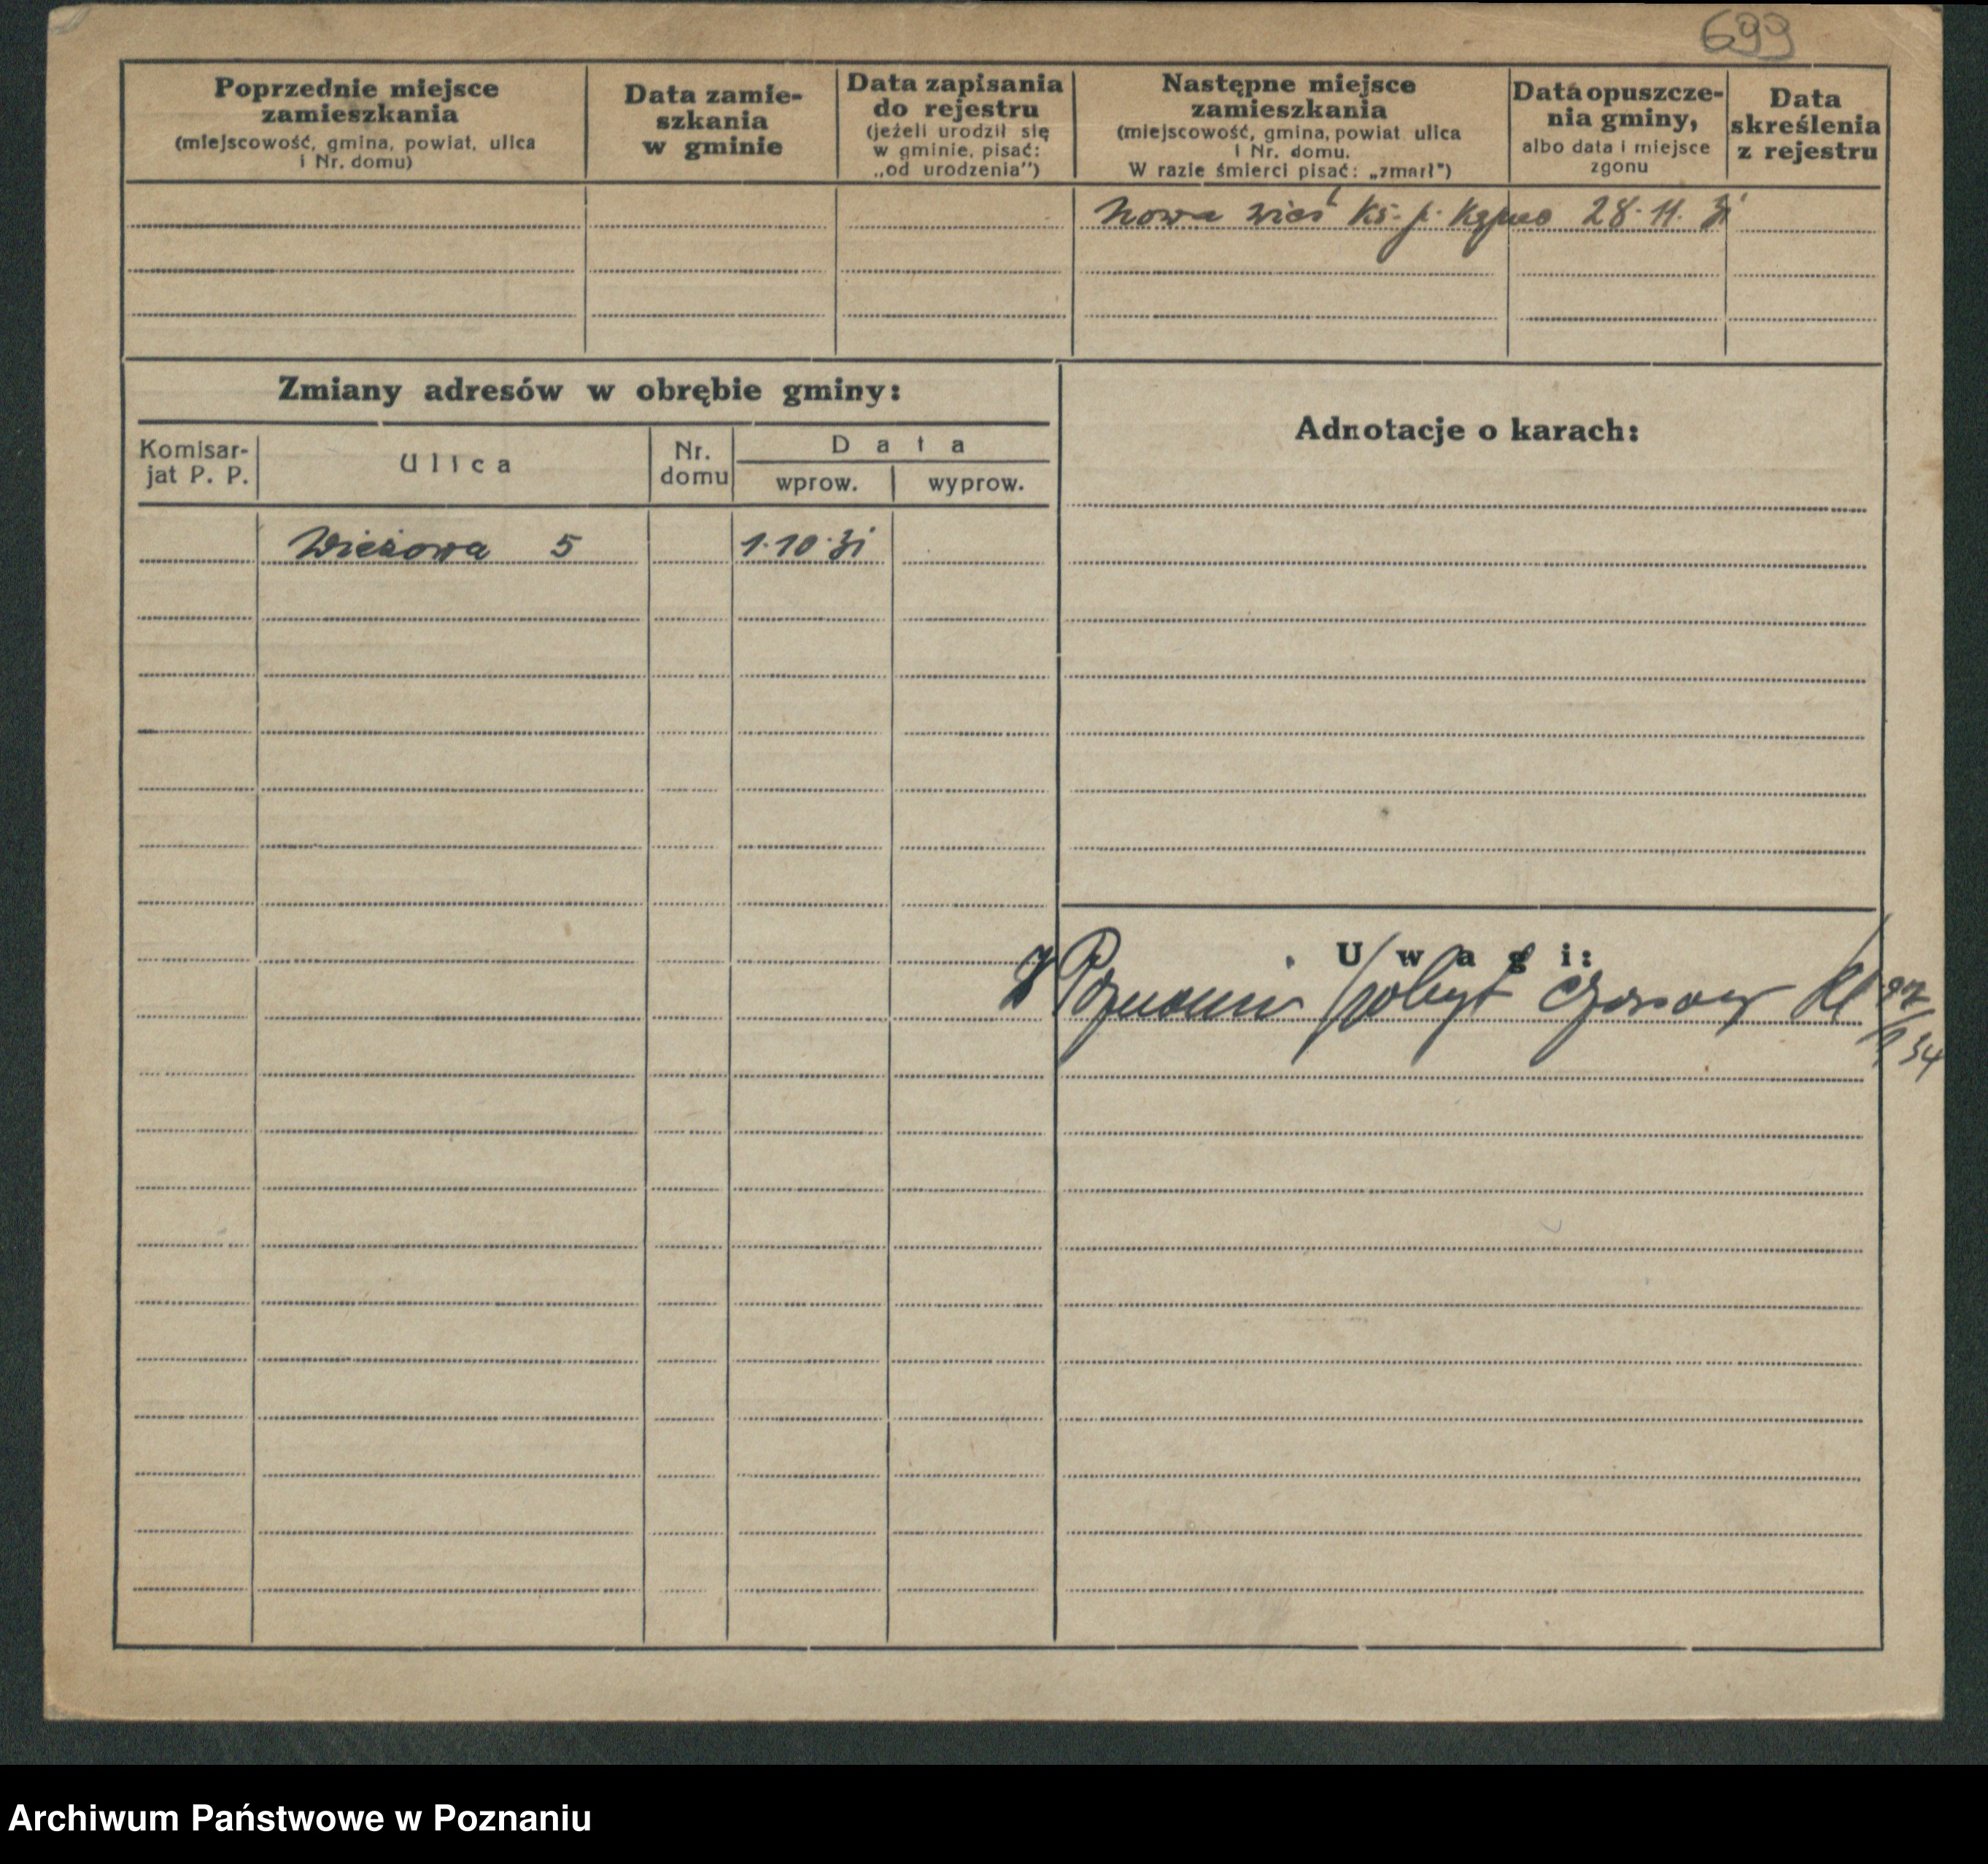 699
Poprzednie miejsce
zamieszkania
(miejscowość, gmina, powiat, ulica
i Nr. domu)
Data zamie-
szkania
w gminie
Data zapisania
do rejestru
(jeżeli urodził się
w gminie, pisać:
„od urodzenia")
Następne miejsce
zamieszkania
(miejscowość, gmina, powiat ulica
i Nr. domu.
W razie śmierci pisać: „zmarł")
Data opuszcze-
nia gminy,
albo data i miejsce
zgonu
Data
skreślenia
z rejestru
Nowa wieś Ks. p. 28. 11. 31
Zmiany adresów w obrębie gminy:
Komisar-
jat P. P.
Ulica
Nr.
domu
Data
wprow.
wyprow.
Wieżowa 5 1. 10. 31
Adnotacje o karach:
Uwagi:
Z Poznania pobyt czasowy
34
Archiwum Państwowe w Poznaniu